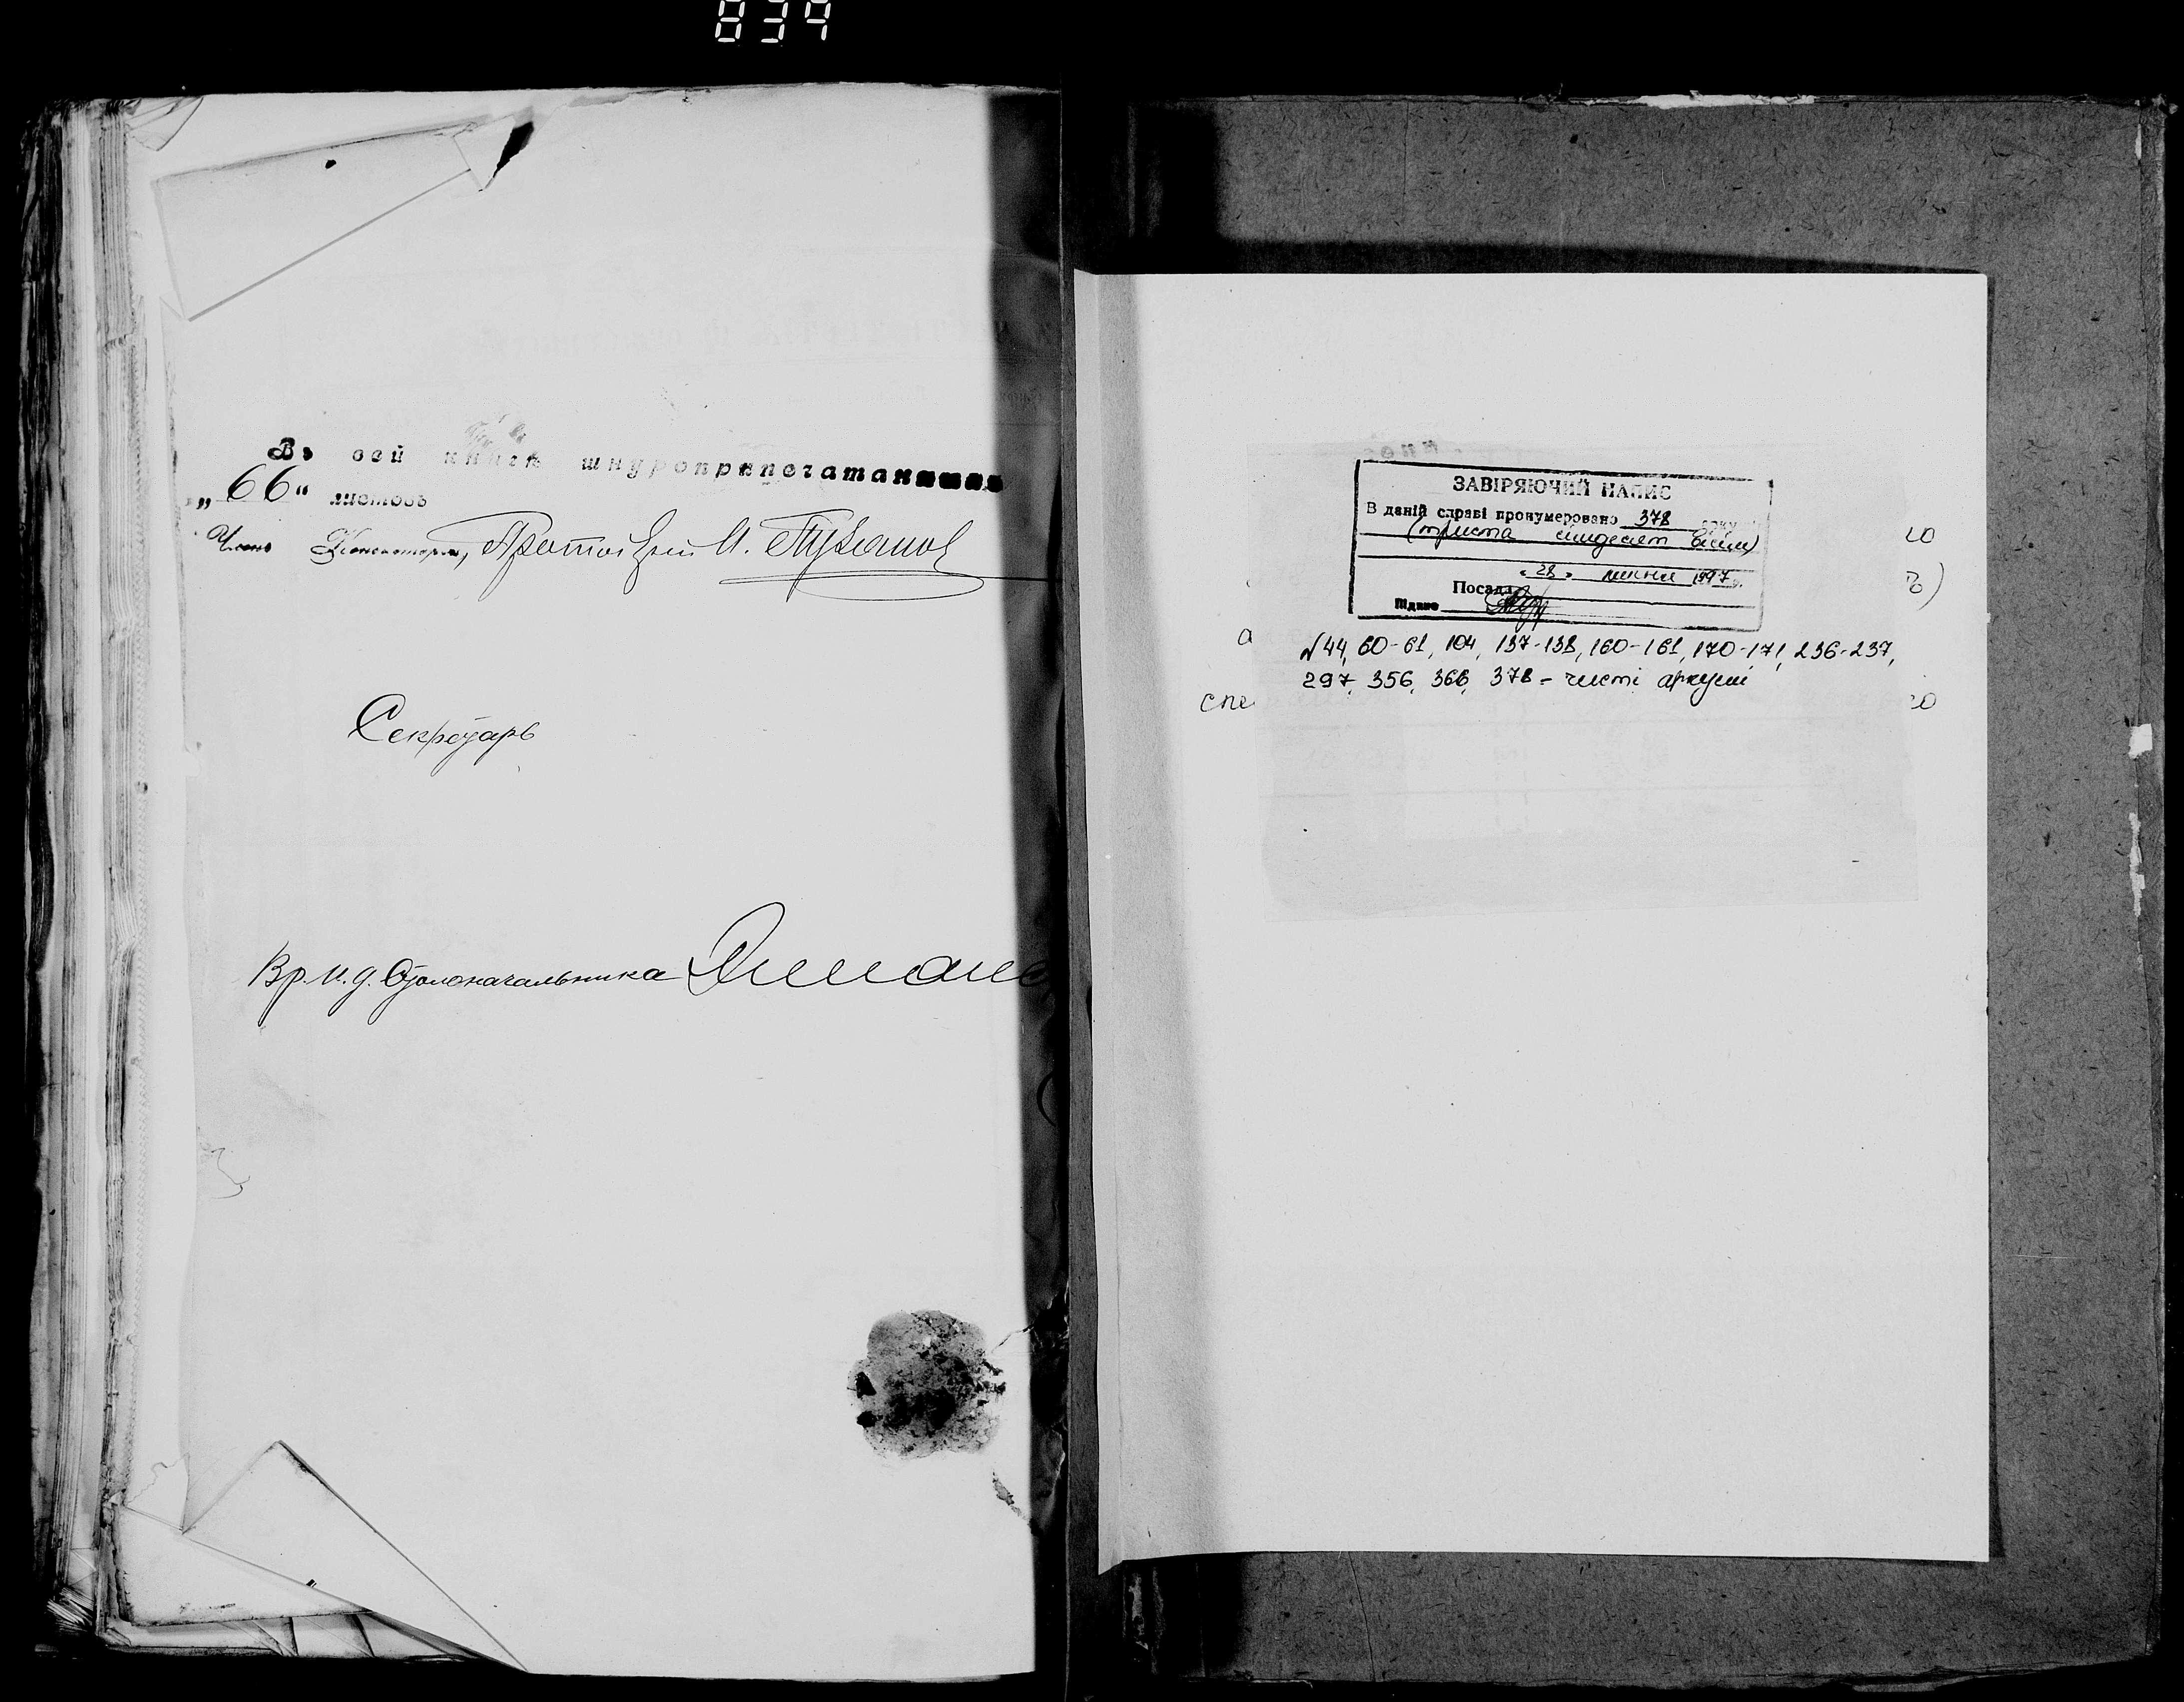 834
Въ сей книгѣ шнуроприпечатанныхъ
„66“ листовъ
Членъ Консисторіи, Протоіерей И.
Секретарь
Вр. и. д. Столоначальника
ЗАВІРЯЮЧИЙ НАПИС
В даній справі пронумеровано 378 арку
(триста сімдесят вісім)
«28» липня 1997 р.
Посада
Підпис
а
N 44, 60-61, 104, 137-138, 160-161, 170-171, 236-237,
297, 356, 366, 378 - чисті аркуші
спе